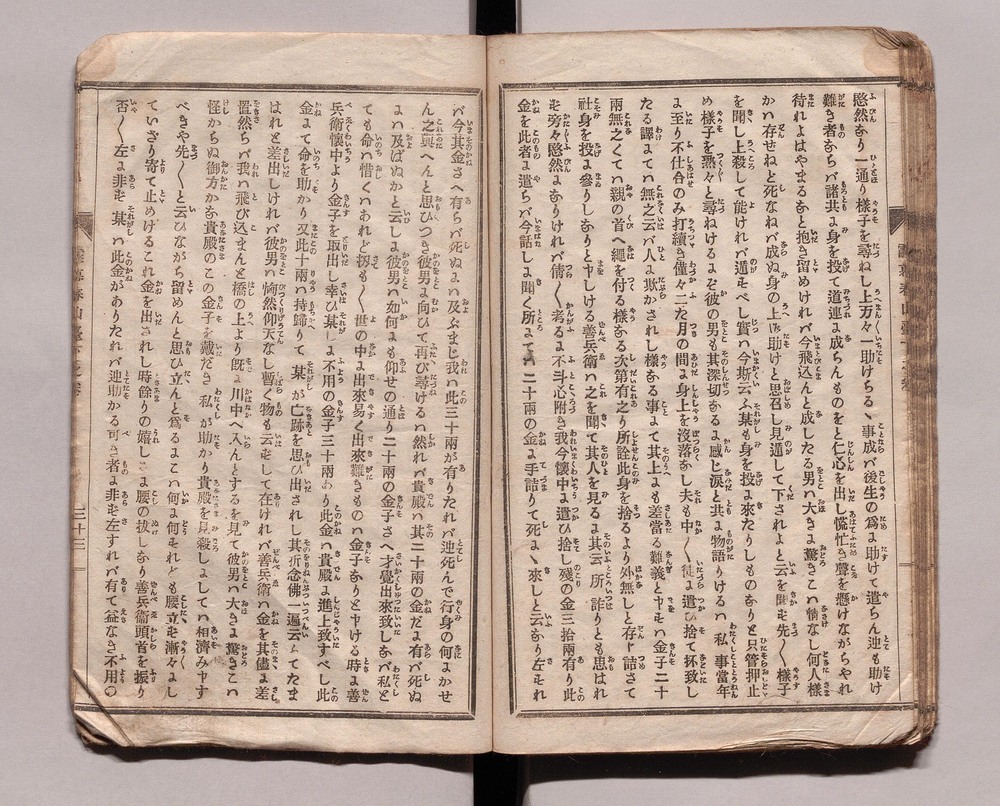 愍然なり一通り樣子を尋ねし上万々一助けらるゝ事成バ後生の爲に助けて遣らん迚も助け
難き者ならバ諸共に身を投て道連に成らんものをと仁心を出し慌忙き聲を懸けながらやれ
待れよはやまるなと抱き留めけれバ今飛込んと成したる男ハ大きに驚きこハ情なし何人樣
かハ存せねと死なねバ成ぬ身の上に助けと思召し見遁して下されよと云を聞ず先〱樣子
を聞し上殺して能けれバ遁すべし實ハ今斯云ふ某も身を投に來たりしものなりと只管押止
め樣子を熟々と尋ねけるにぞ彼の男も其深切なるに感じ涙と共に物語りけるハ私し事當年
に至り不仕合のみ打續き僅々二た月の間に身上を沒落なし夫も中〱徒に遣ひ捨て抔致し
たる譯にてハ無之云バ人に欺かされし樣なる事にて其上にも差當る難義と申すハ金子二十
兩無之くてハ親の首へ繩を付る樣なる次第有之り所詮此身を捨るより外無しと存じ詰さて
社身を投に參りしなりと申しける善兵衛ハ之を聞て其人を見るに其云ふ所詐りとも思はれ
ず旁々愍然になりけれバ倩〱考るに不斗心附き我今懷中に遣ひ捨し殘の金三拾兩有り此
金を此者に遣らバ今話しに聞く所にてハ二十兩の金に手詰りて死に來しと云なり左すれ
バ今其金さへ有らバ死ぬにハ及ぶまじ我ハ此三十兩が有りたれバ迚死んで行身の何にかせ
ん之を與へんと思ひつき彼男に向ひて再び尋けるハ然れバ貴殿ハ其二十兩の金だに有バ死ぬ
にハ及ばぬかと云しに彼男ハ如何にも仰せの通り二十兩の金子さへ才覺出來致しなバ私しと
ても命ハ惜くハあれど扨も〱世の中に出來易く出來難きものハ金子なりと申ける時に善
兵衛懷中より金子を取出し幸ひ某しに不用の金子三十兩あり此金ハ貴殿に進上致すべし此
金にて命を助かり又此十兩ハ持歸りて某が亡跡を思ひ出されし其折念佛一遍云ふてたま
はれと差出しけれバ彼男ハ愕然仰天なし暫く物も云ずして在けれバ善兵衛ハ金を其儘に差
置然らバ我ハ飛び込まんと橋の上より既に川中へ入んとするを見て彼男ハ大きに驚きこハ
怪からぬ御方かな貴殿のこの金子を戴だき私しが助かり貴殿を見殺しにしてハ相濟み申す
べきや先〱と云ひながら留めんと思ひ立んと爲るにこハ何に何それども腰立ず漸々にし
ていざり寄て止めけるこれ金を出されし時餘りの嬉しさに腰の拔しなり善兵衛頭首を振り
否〱左に非ず某しハ此金がありたれバ迚助かる可き者に非ず左すれバ有て益なき不用の
三十三